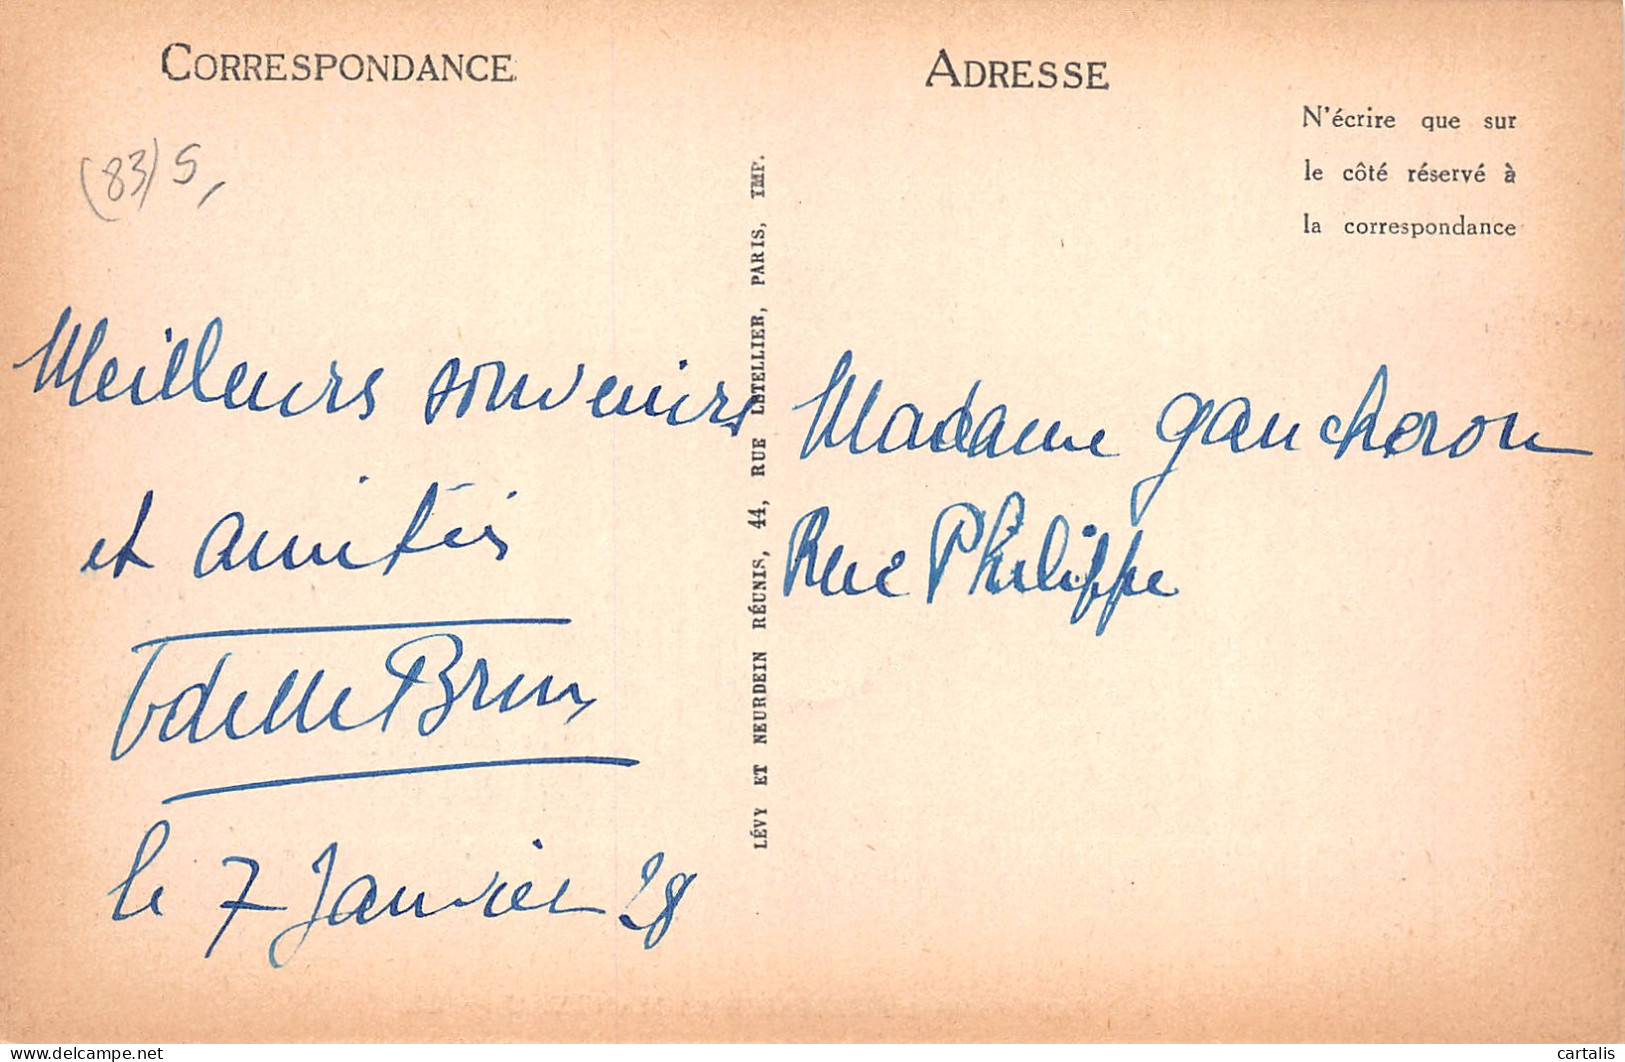 CORRESPONDANCE
(83) 5,
Meilleurs souvenirs
et amitiés
Odette Brun
le 7 Janvier 28
LÉVY ET NEURDEIN RÉUNIS, 44, RUE LETELLIER, PARIS, IMP.
ADRESSE
N'écrire que sur
le côté réservé à
la correspondance
Madame Gaucheron
Rue Philippe
www.cartalis.com
cartalis